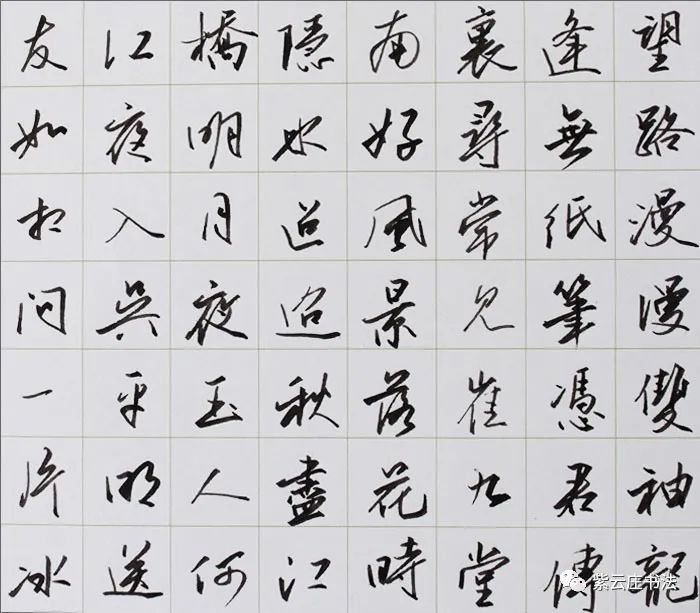 望路漫漫雙袖龍
逢無紙筆憑君傳
裏尋常見崔九堂
南好風景落花時
隱水迢迢秋盡江
橋明月夜玉人何
江夜入吳平明送
友如相問一片冰
紫云庄书法